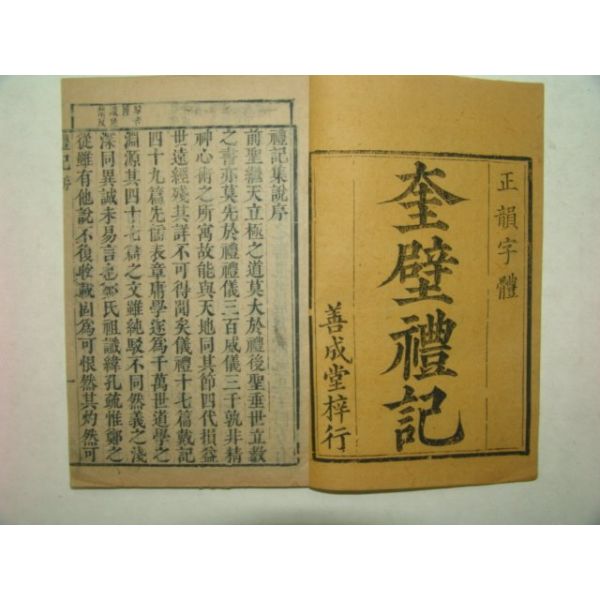 正韻字體
奎壁禮記
善成堂梓行
禮記集說序
前聖繼天立極之道莫大於禮後聖垂世立敎
之書亦莫先於禮禮儀三百威儀三千孰非精
神心術之所寓故能與天地同其節四代損益
世遠經殘其詳不可得聞矣儀禮十七篇戴記
四十九篇先儒表章庸學遂爲千萬世道學之
淵源其四十七篇之文雖純駁不同然義之淺
深同異誠未易言也鄭氏祖讖緯孔疏惟鄭之
從雖有他說不復收載固爲可恨然其灼然可
禮記序
一